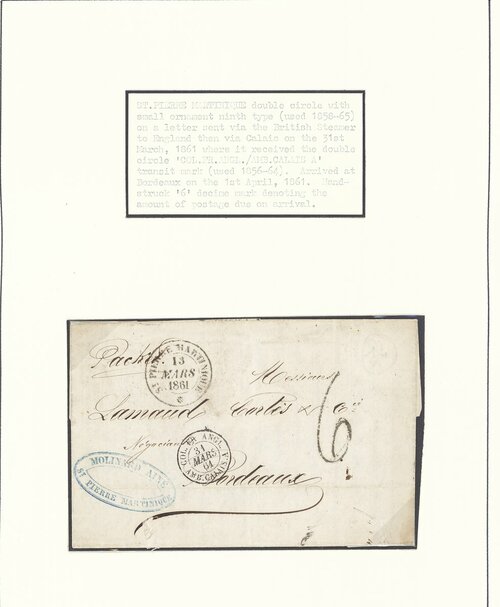 ST.PIERRE MARTINIQUE double circle with
small ornament ninth type (used 1858-65)
on a letter sent via the British Steamer
to England then via Calais on the 31st
March, 1861 where it received the double
circle 'COL.FR.ANGL./AMB.CALAIS A'
transit mark (used 1856-64). Arrived at
Bordeaux on the 1st April, 1861. Hand-
struck '6' decime mark denoting the
amount of postage due on arrival.
ST PIERRE MARTINIQUE
13
MARS
1861
Messieurs
Lamaud Cortès & Cie
6
Négociants
COL. FR. ANGL.
31
MARS
61
AMB. CALAIS A
Bordeaux
MOLINARD AINÉ
ST PIERRE MARTINIQUE